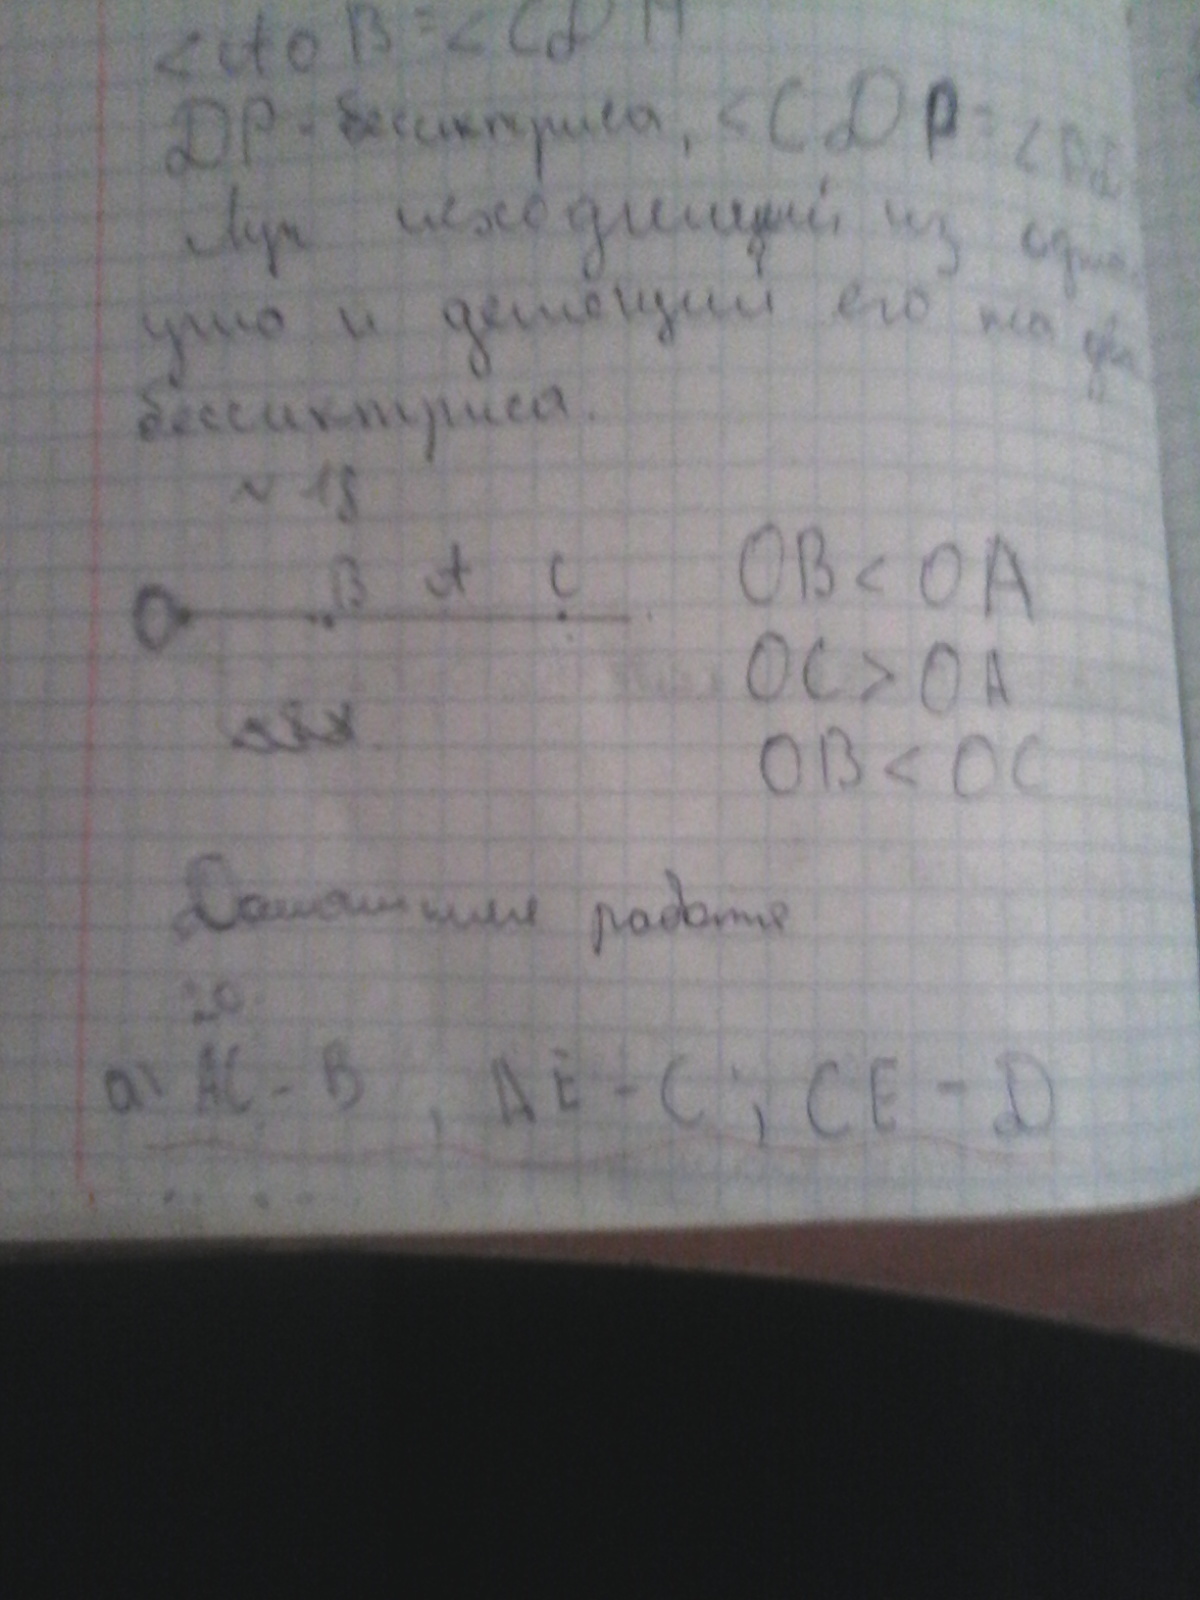 <AOB = <CDM
DP - бессиктриса, <CDP = <PD
Луч исходящий из
угла и делющий его на
бессиктриса.
N 18
O B A C
OB < OA
OC > OA
OB < OC
Домашняя работа
20
а) AC - B , AE - C ; CE - D